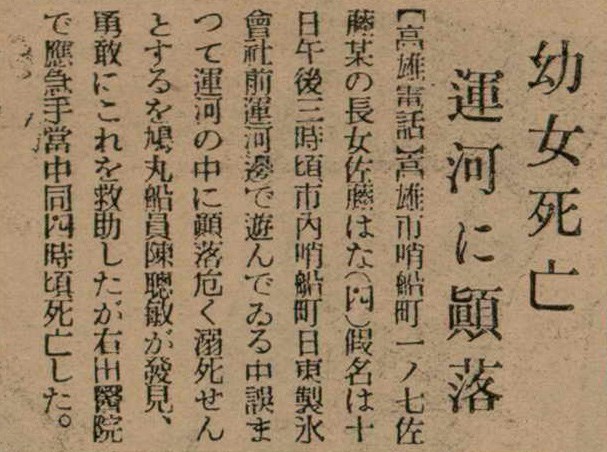 幼女死亡
運河に顚落
【高雄電話】高雄市哨船町一ノ七佐
藤某の長女佐藤はな(四)假名は十
日午後三時頃市內哨船町日東製氷
會社前運河邊で遊んでゐる中誤ま
つて運河の中に顚落危く溺死せん
とするを鳩丸船員陳聰敏が發見、
勇敢にこれを救助したが右田醫院
で應急手當中同四時頃死亡した。